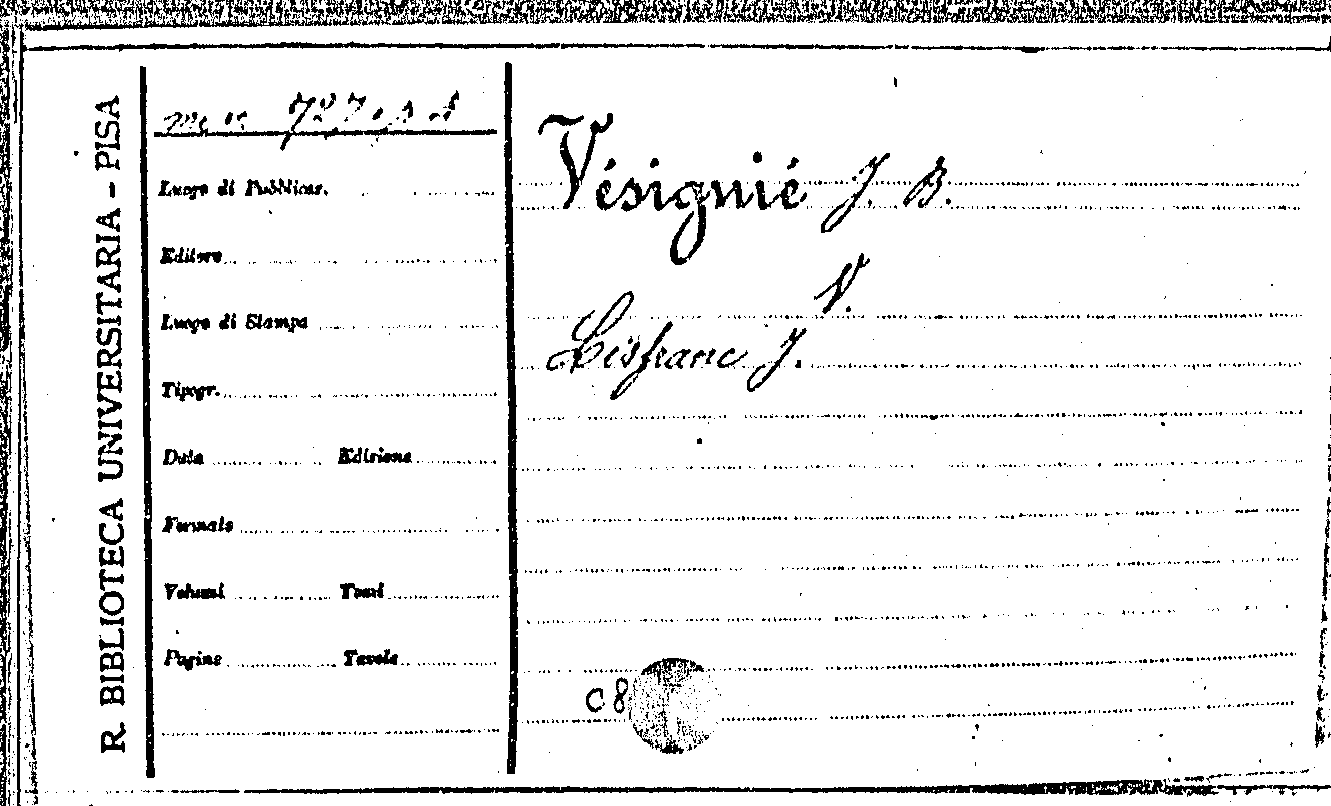 R. BIBLIOTECA UNIVERSITARIA - PISA
727
Luogo di Pubblicaz.
Editore
Luogo di Stampa
Tipogr.
Data Edizione
Formato
Volumi Tomi
Pagine Tavole
Vésignié J. B.
V.
Lisfranc J.
C 8